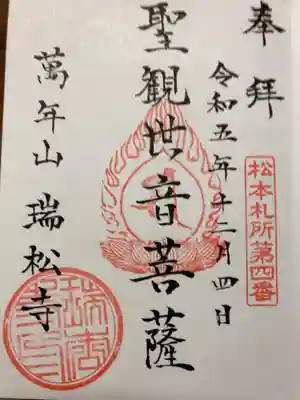 奉拝
令和五年十二月四日
松本札所第四番
聖観世音菩薩
萬年山 瑞松寺